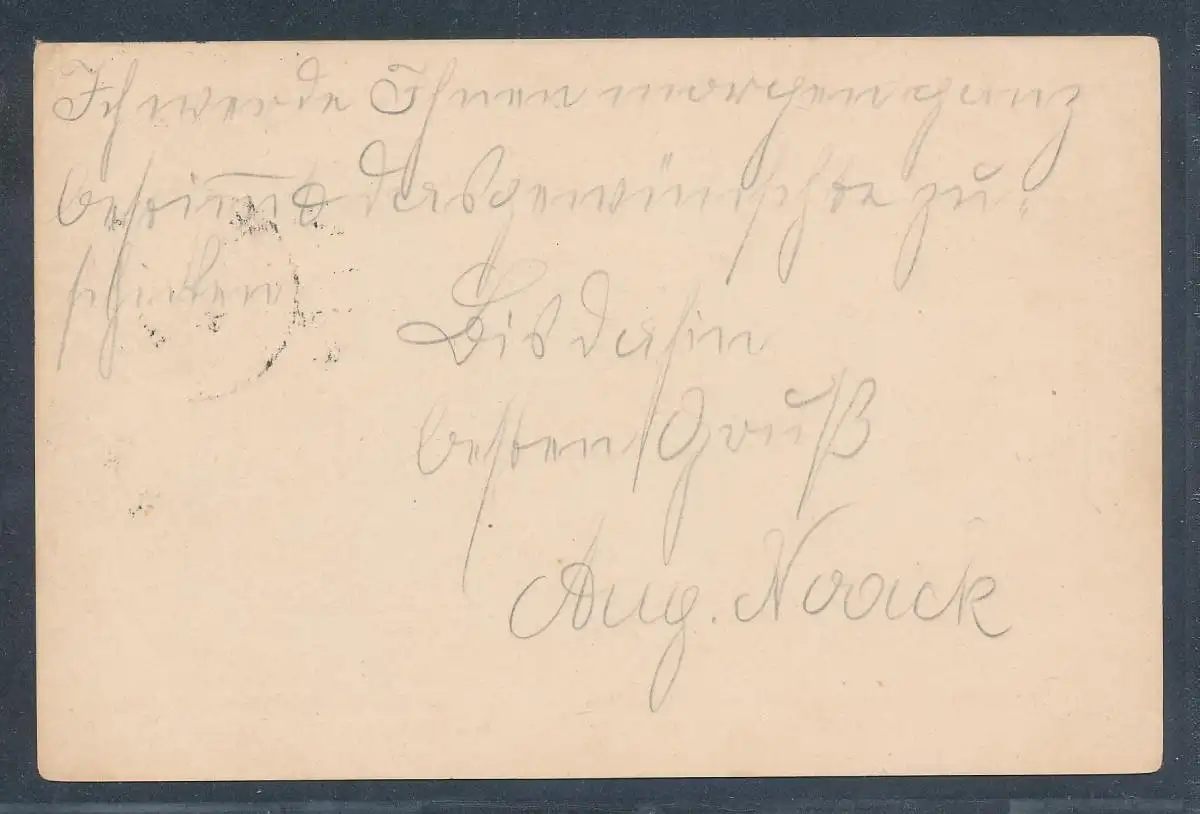 Ich werde Ihnen morgen ganz
bestim̅t das gewünschte zu-
schicken
Bis dahin
besten Gruß
Aug. Noack